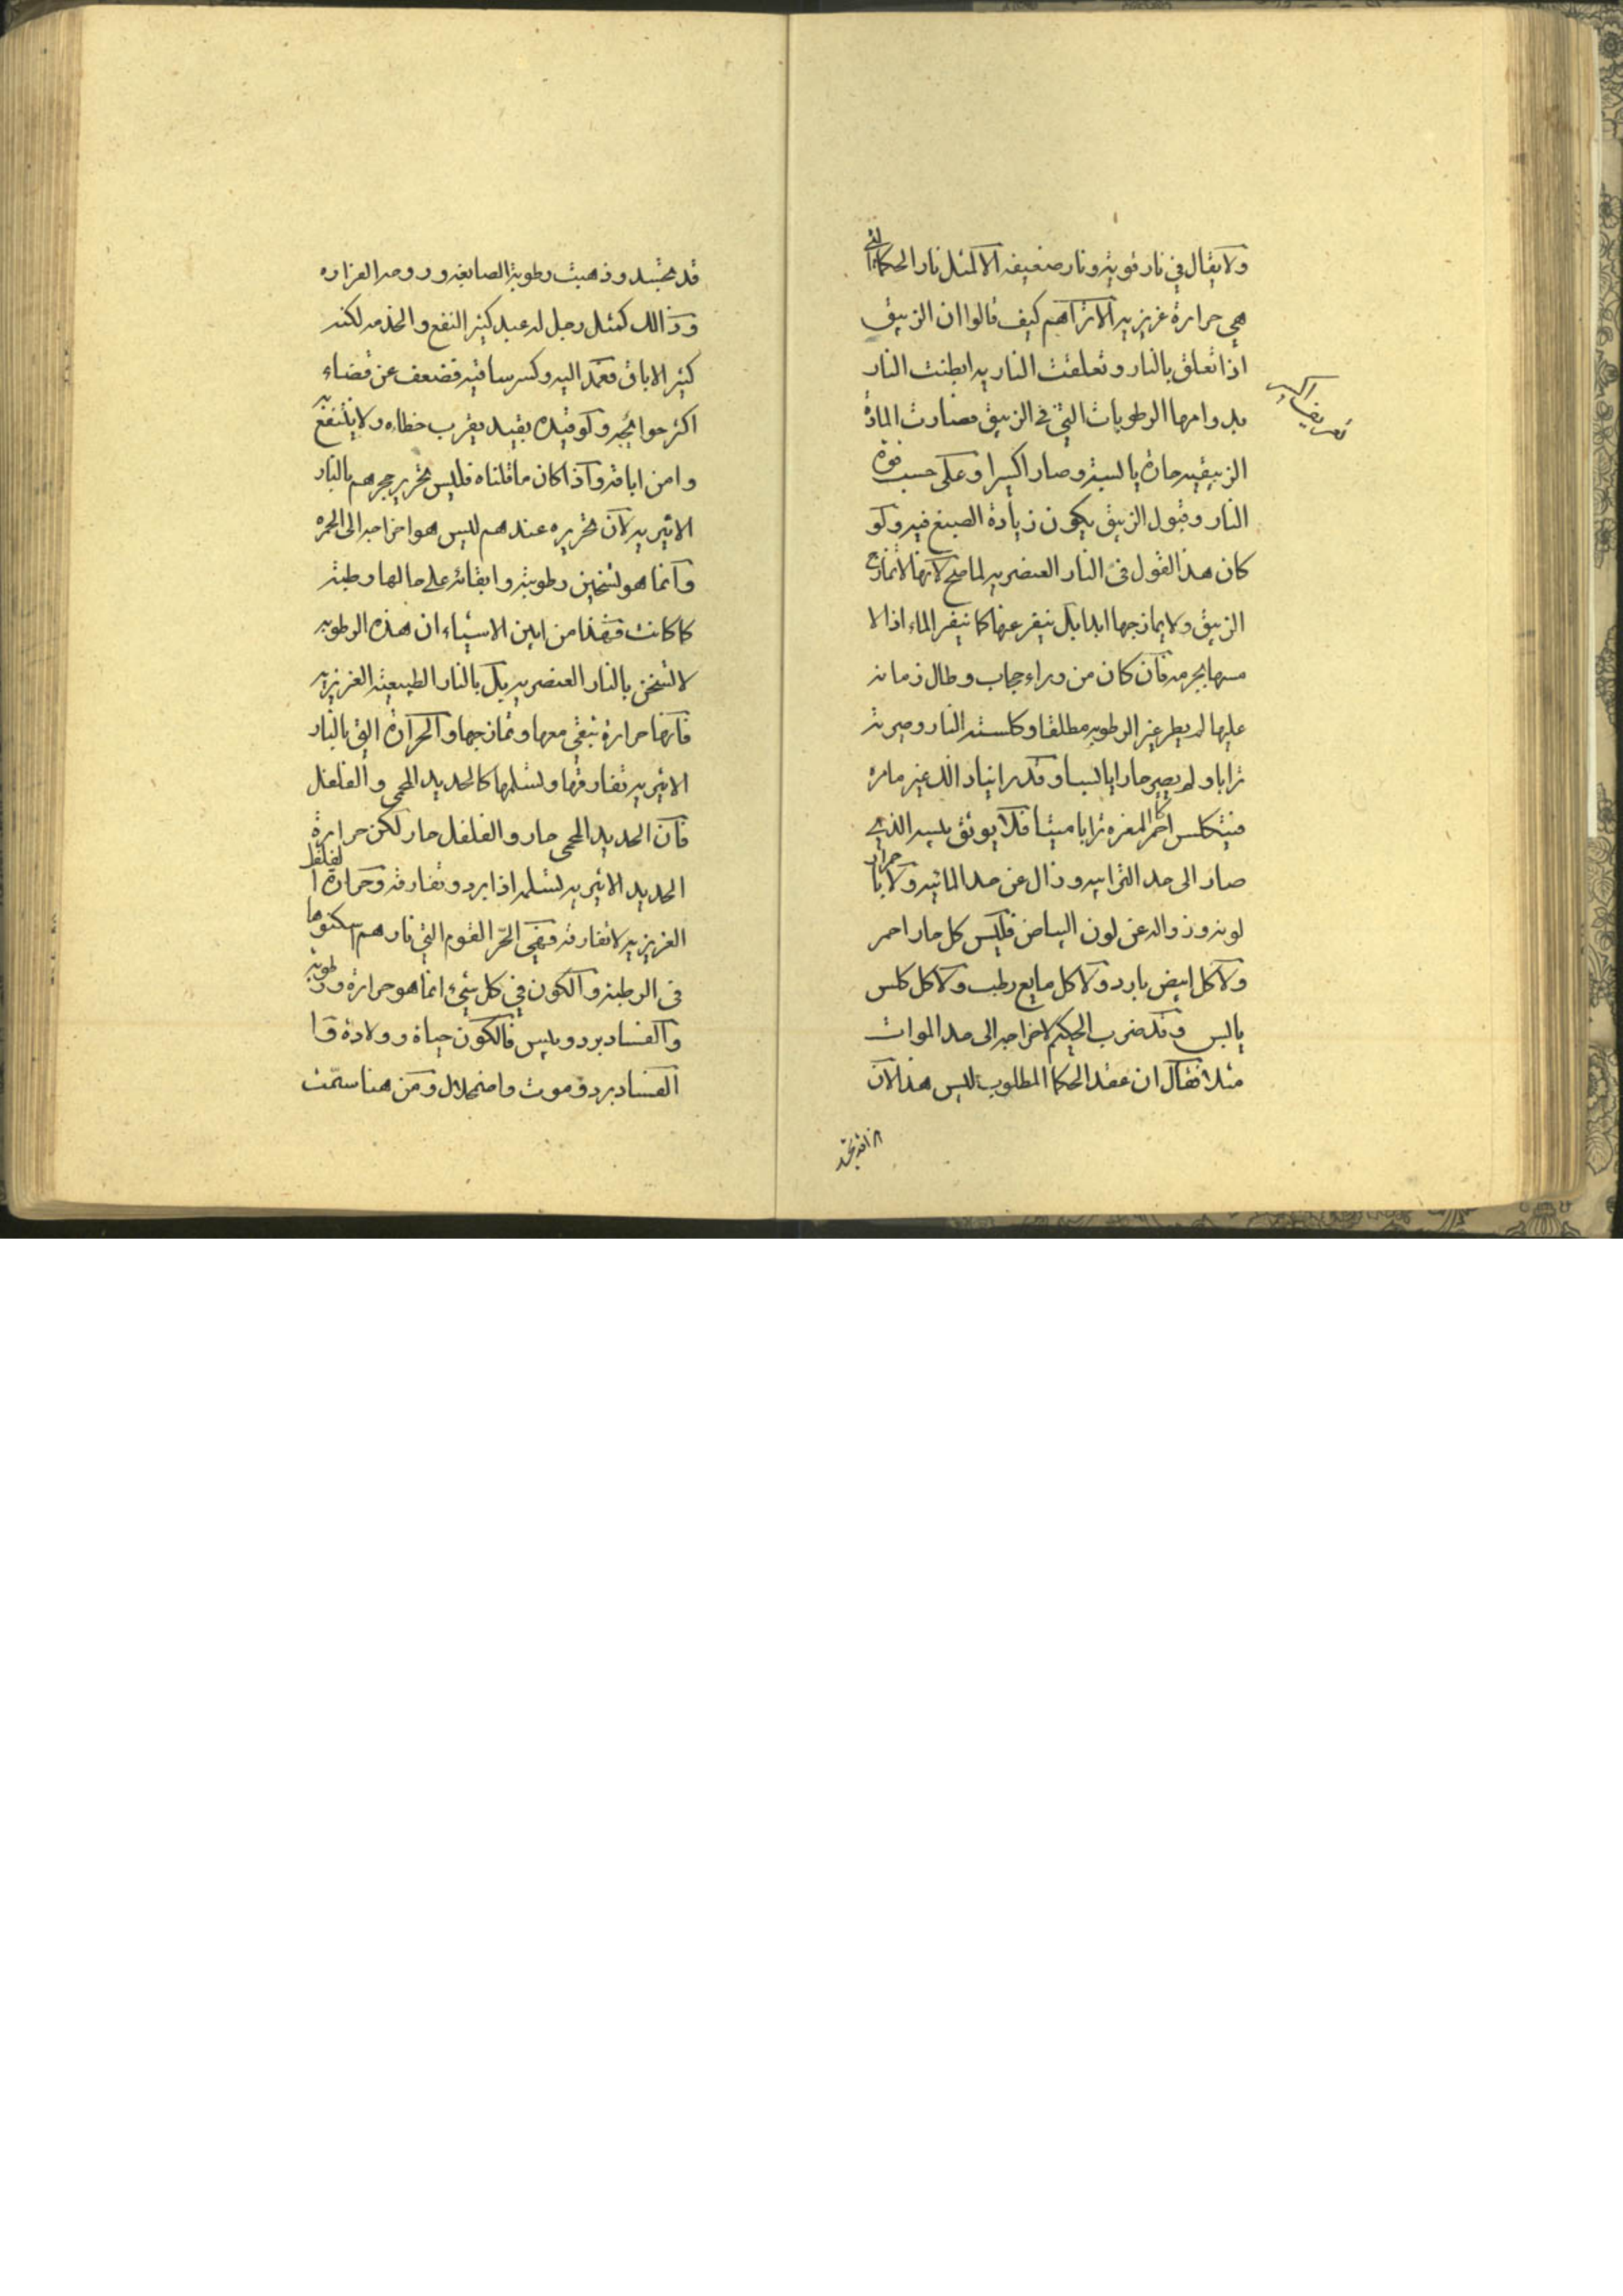 ولا يقال في نار قوية ونار ضعيفة الا لمثل نار الحكما التي
هي حرارة غريزية الا تراهم كيف قالوا ان الزيبق
اذا تعلق بالنار وتعلقت النار به ابطنت النار
بدوامها الرطوبات التي في الزيبق فصارت المادة
الزيبقيه حارة يابسة وصار اكسيرا وعلى حسب قوة
النار وقبول الزيبق يكون زيادة الصبغ فيه ولو
كان هذا القول في النار العنصريه لما صح لانها لا تمازج
الزيبق ولا يمازجها ابدا بل ينفر عنها كما ينفر الماء اذا لا
مسها بجرمه فان كان من وراء حجاب وطال زمانه
عليها لم يطر غير الرطوبه مطلقا وكلسته النار وصيرته
ترابا ولم يصير حارا يابسا وقد راينا ذالك غير مامره
فيتكلس احمر كالمغره ترابا ميتا فلا يوثق بيبسه الذي
صار الى حد الترابيه وزال عن حد المائيه ولا با حمرار
لونه وزواله عن لون البياض فليس كل حار احمر
ولا كل ابيض بارد ولا كل مايع رطب ولا كل كلس
يابس وقد ضرب الحكيم لاخراجه الى حد الموات
مثلا فقال ان عقد الحكما المطلوب ليس هذا لان
تعريف اكسير
قد تجسد وذهبت رطوبته الصابغه وروحه الغزاره
وذالك كمثل رجل له عبد كثير النفع والخدمه لكنه
كثير الاباق فعمد اليه وكسر ساقيه فضعف عن قضاء
اكثر حوائجه ولو قيده بقيد يقرب خطاه ولا ينتفع به
وامن اباقه واذا كان ما قلناه فليس تحرير حجرهم بالنار
الاثيريه لان تحريره عندهم ليس هو اخراجه الى الحمره
وانما هو تسخين رطوبته وابقائه على حالها رطبة
كما كانت فهذا من ابين الاشياء ان هذه الرطوبه
لا تسخن بالنار العنصريه بل بالنار الطبيعية الغريزيه
فانها حرارة تبقى معها وتمازجها والحرارة التي بالنار
الاثيريه تفارقها وتسلمها كالحديد المحمى والفلفل
فان الحديد المحمى حار والفلفل حار لكن حرارة
الحديد الاثيريه تسلمه اذا برد وتفارقه وحرارة الفلفل
الغريزيه لا تفارقه فهي الحر القوم التي نارهم سكنوها
في الرطبة والكون في كل شيء انما هو حرارة ورطوبة
والفساد برد ويبس فالكون حياة وولادة وا
الفساد برد وموت واضمحلال ومن هنا سمت